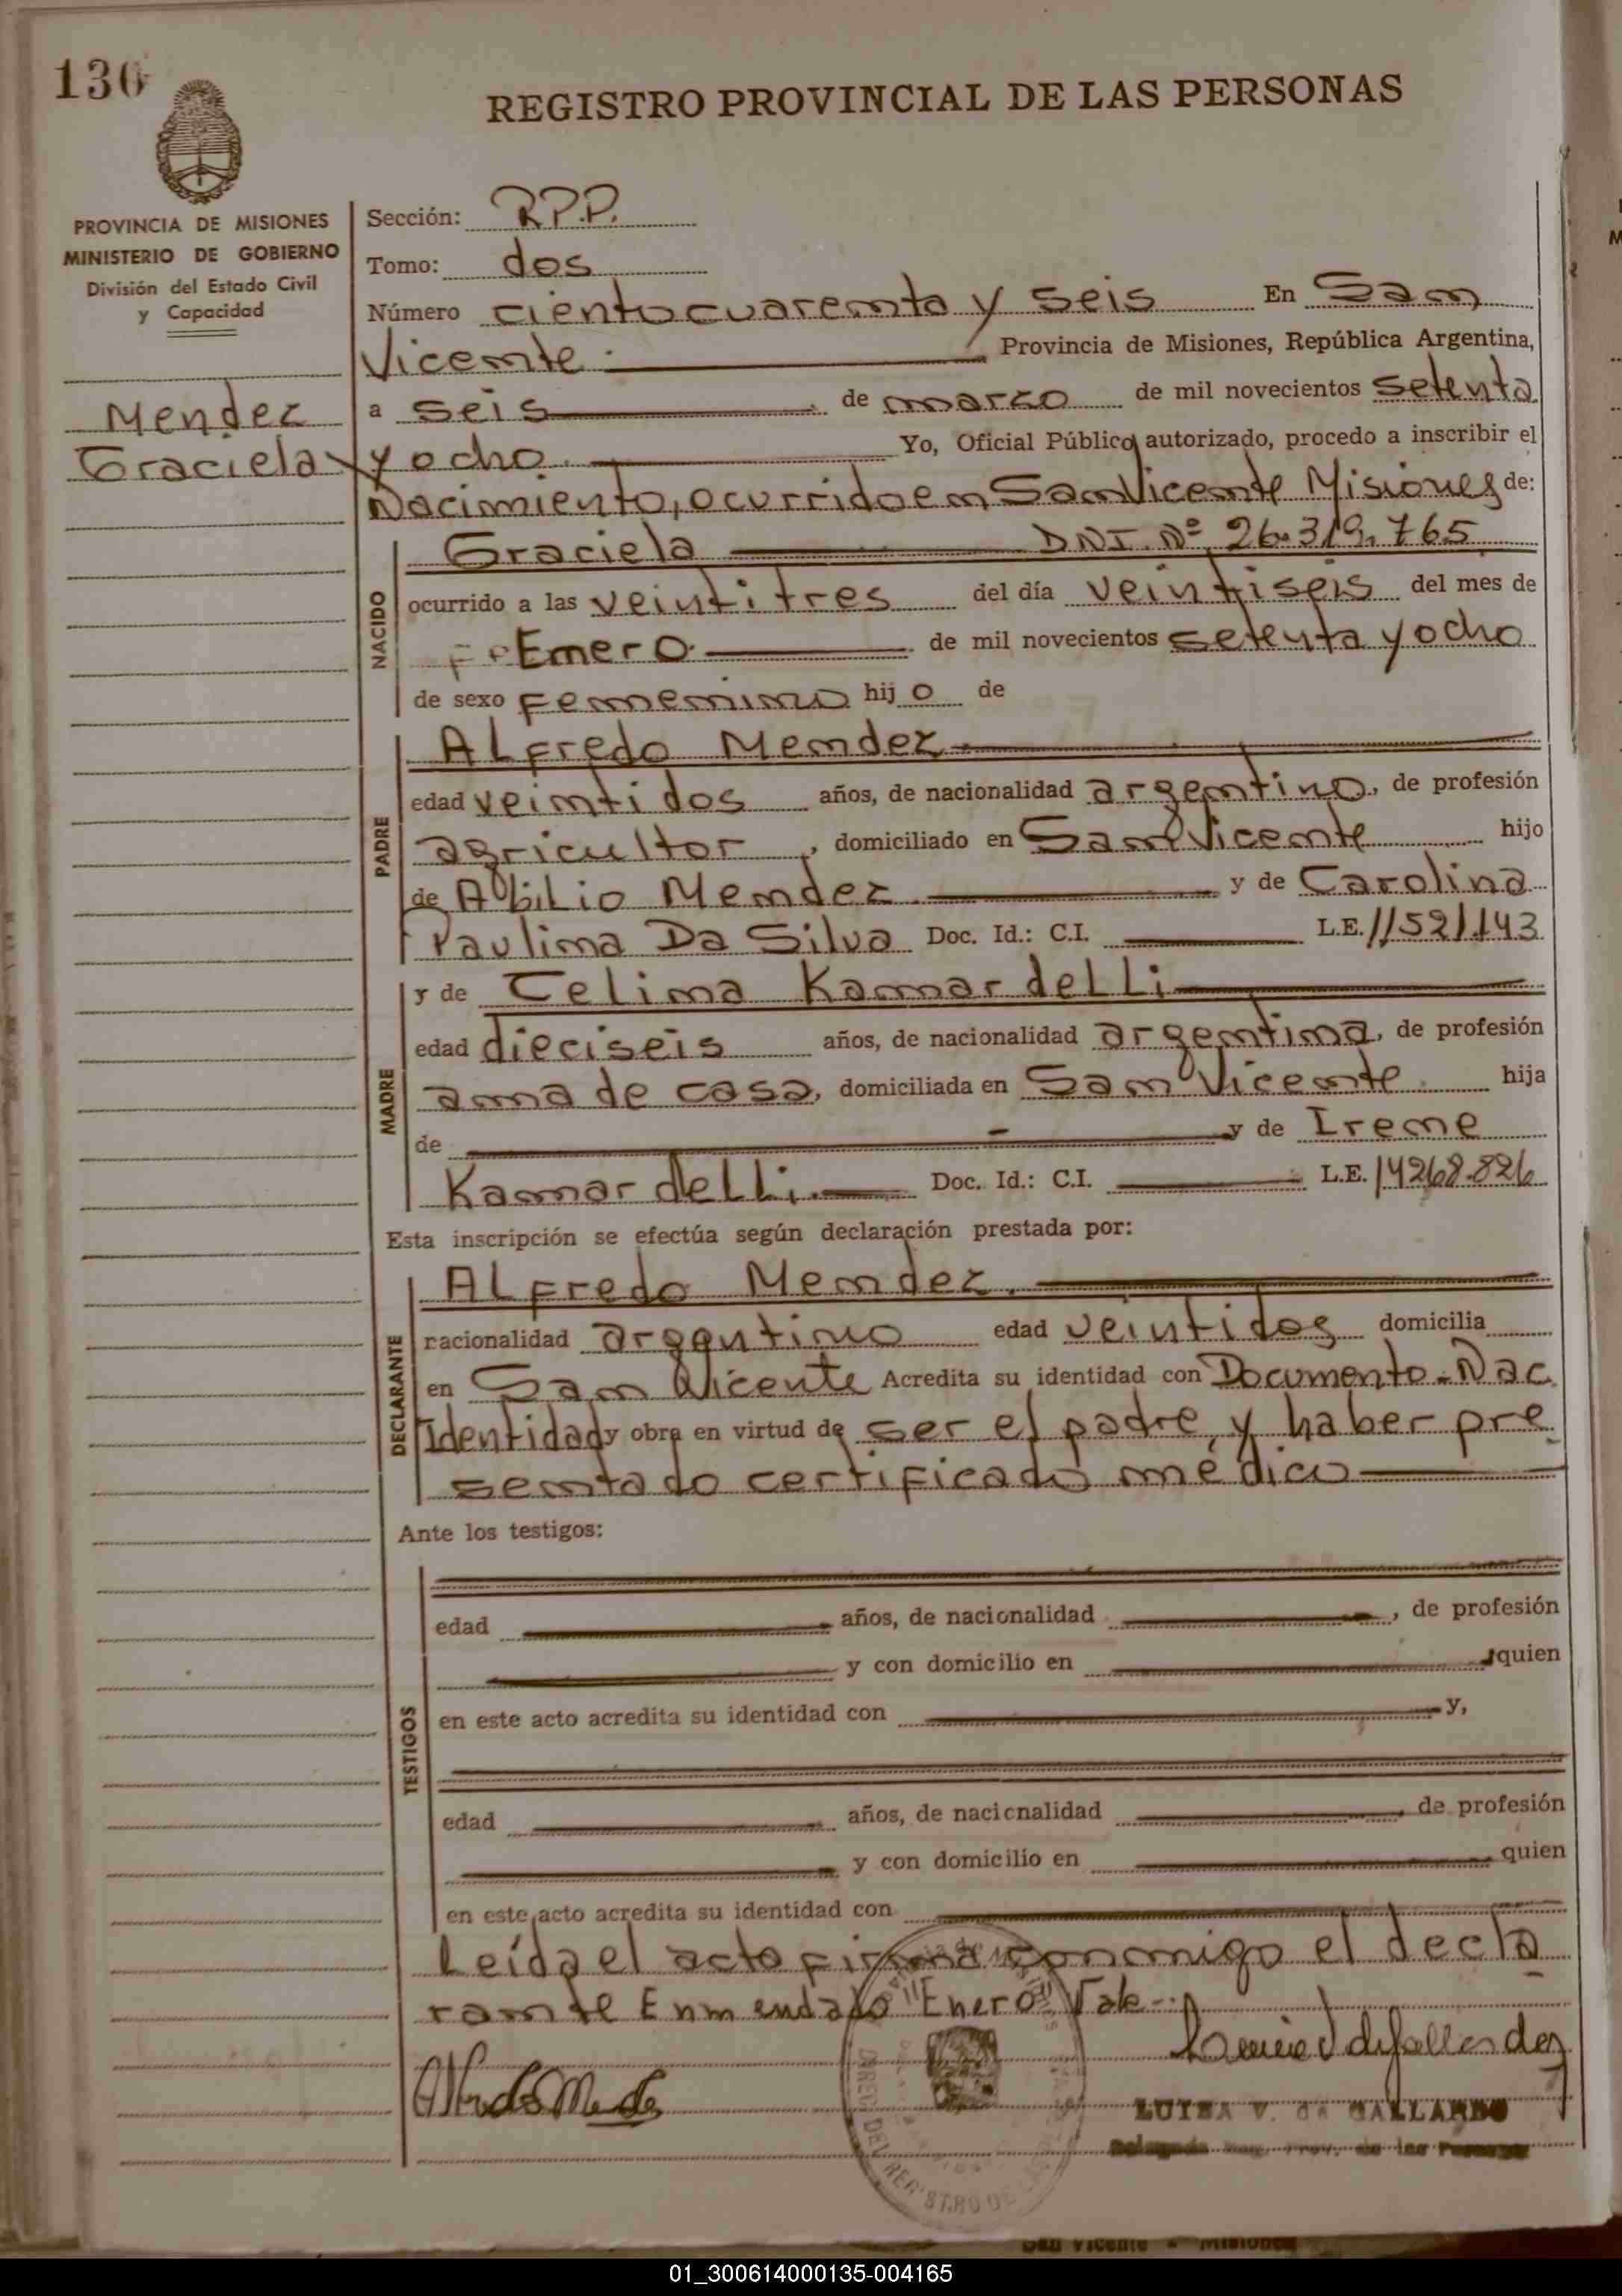 130
REGISTRO PROVINCIAL DE LAS PERSONAS
PROVINCIA DE MISIONES
MINISTERIO DE GOBIERNO
División del Estado Civil
y Capacidad
Mendez
Graciela
Sección: R.P.P.
Tomo: dos
Número ciento cuarenta y seis En San
Vicente Provincia de Misiones, República Argentina,
a seis de marzo de mil novecientos setenta
y ocho. Yo, Oficial Público autorizado, procedo a inscribir el
Nacimiento, ocurrido en San Vicente Misiones de:
NACIDO
Graciela DNI. Nº 26.319.765
ocurrido a las veintitres del día veintiseis del mes de
Enero de mil novecientos setenta y ocho
de sexo femenino hijo de
PADRE
Alfredo Mendez
edad veintidos años, de nacionalidad argentino, de profesión
agricultor, domiciliado en San Vicente hijo
de Abilio Mendez y de Carolina
Paulina Da Silva Doc. Id.: C.I. L.E. 11521.143
MADRE
y de Celina Kannardelli
edad dieciseis años, de nacionalidad argentina, de profesión
ama de casa, domiciliada en San Vicente hija
de y de Irene
Kannardelli. Doc. Id.: C.I. L.E. 14268.826
Esta inscripción se efectúa según declaración prestada por:
DECLARANTE
Alfredo Mendez.
nacionalidad argentino edad veintidos domicilia
en San Vicente Acredita su identidad con Documento-Nac
Identidad y obra en virtud de ser el padre, y haber pre
sentado certificado médico
Ante los testigos:
TESTIGOS
edad años, de nacionalidad , de profesión
y con domicilio en quien
en este acto acredita su identidad con y,
edad años, de nacionalidad de profesión
y con domicilio en quien
en este acto acredita su identidad con
Leída el acto firma conmigo el decla
rante Enmendado "Enero" Vale-.
Alfredo Mendez
LUISA V. de GALLARDO
Delegada Reg. Prov. de las Personas
San Vicente - Misiones
01_300614000135-004165